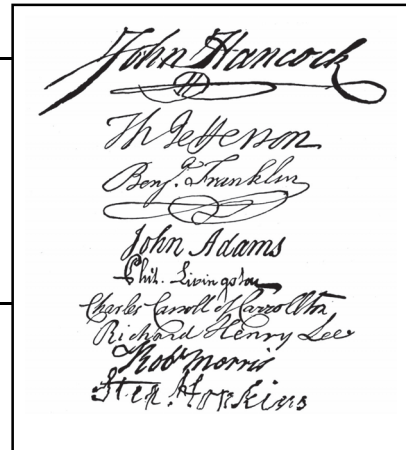 John Hancock
Th Jefferson
Benj. Franklin
John Adams
Phil. Livingston
Charles Carroll of Carrollton
Richard Henry Lee
Robt Morris
Step. Hopkins